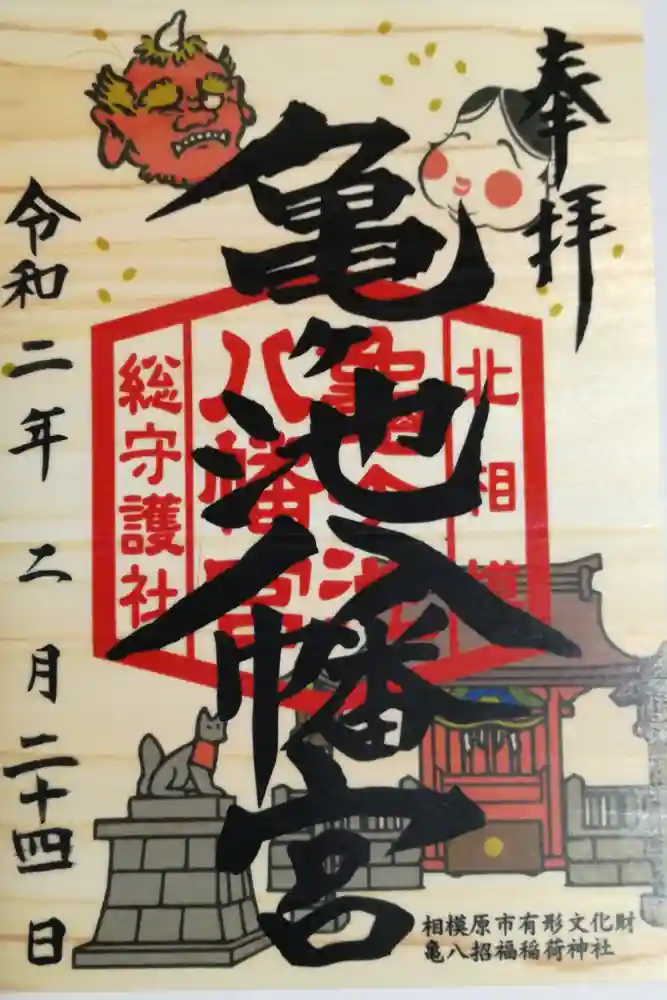 奉拝
亀ヶ池八幡宮
北相模
亀ヶ池
八幡宮
総守護社
令和二年二月二十四日
相模原市有形文化財
亀八招福稲荷神社